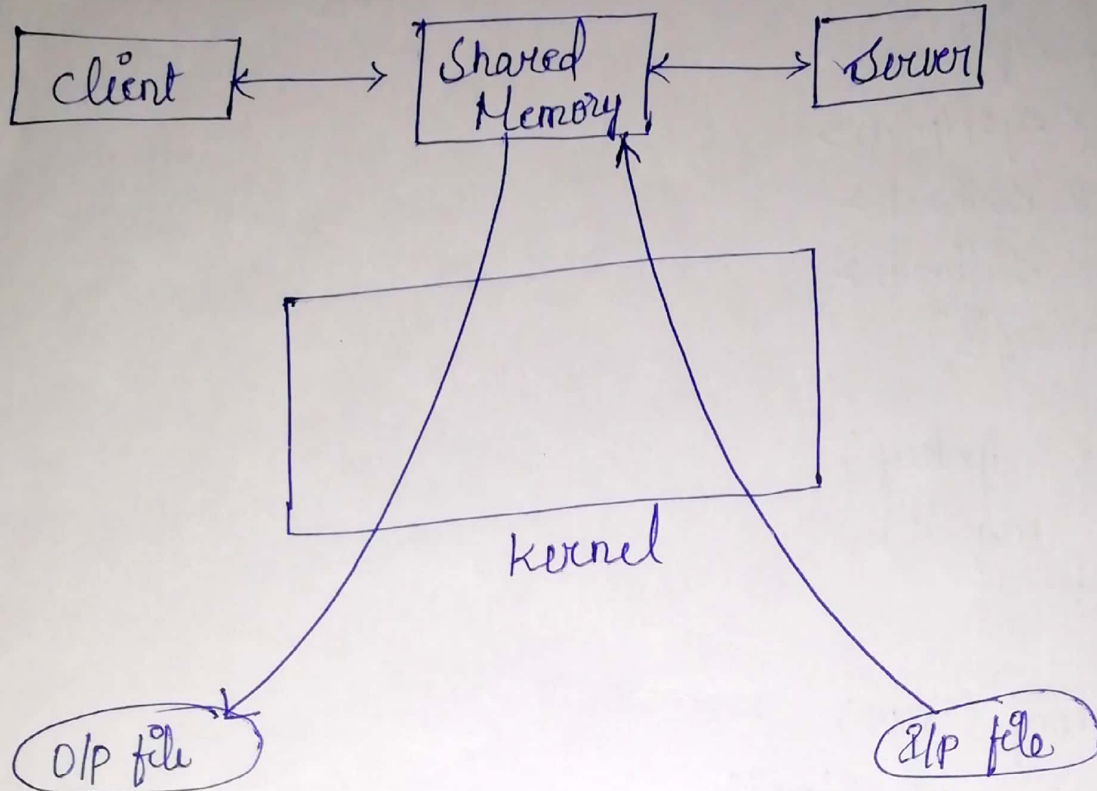 Client
Shared
Memory
Server
Kernel
O/P file
I/P file